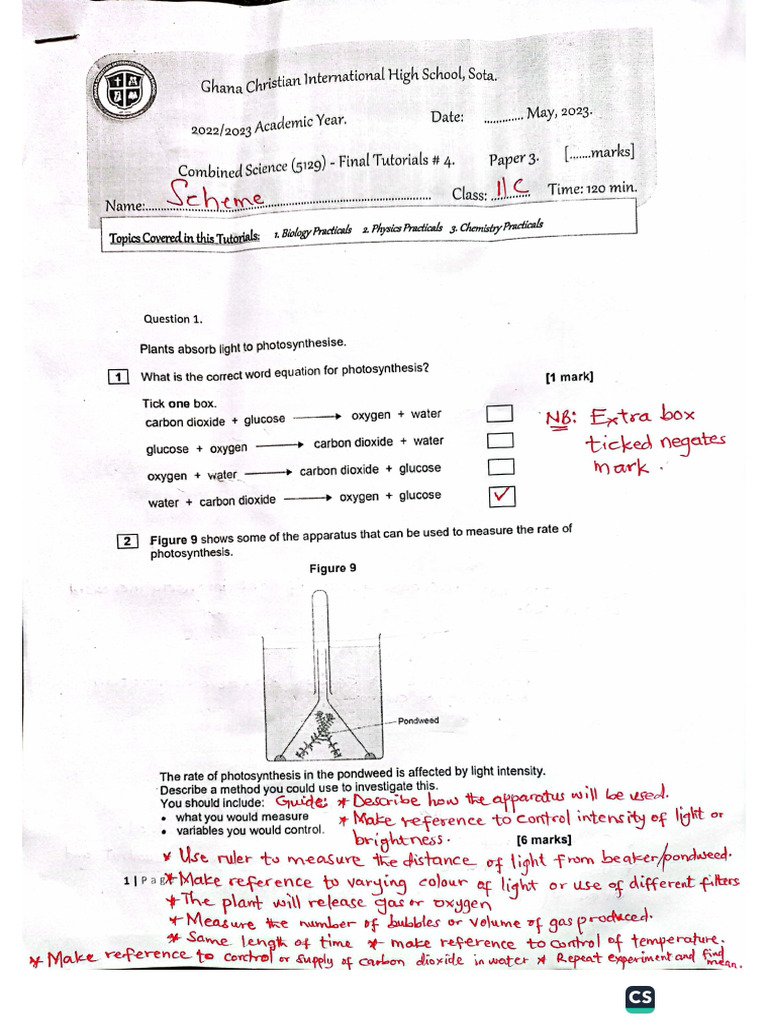 Ghana Christian International High School, Sota.
2022/2023 Academic Year. Date: ............ May, 2023.
Combined Science (5129) - Final Tutorials # 4. Paper 3. [.......marks]
Name:.....Scheme..... Class: ..11C.. Time: 120 min.
Topics Covered in this Tutorials: 1. Biology Practicals 2. Physics Practicals 3. Chemistry Practicals
Question 1.
Plants absorb light to photosynthesise.
1 What is the correct word equation for photosynthesis? [1 mark]
Tick one box.
carbon dioxide + glucose → oxygen + water
glucose + oxygen → carbon dioxide + water
oxygen + water → carbon dioxide + glucose
water + carbon dioxide → oxygen + glucose ✓
NB: Extra box
ticked negates
mark.
2 Figure 9 shows some of the apparatus that can be used to measure the rate of
photosynthesis.
Figure 9
Pondweed
The rate of photosynthesis in the pondweed is affected by light intensity.
Describe a method you could use to investigate this.
You should include: Guide: * Describe how the apparatus will be used.
• what you would measure * Make reference to control intensity of light or
• variables you would control. brightness. [6 marks]
* Use ruler to measure the distance of light from beaker/pondweed.
1 | Pag * Make reference to varying colour of light or use of different filters
* The plant will release gas or oxygen
* Measure the number of bubbles or volume of gas produced.
* Same length of time * make reference to control of temperature.
* Make reference to control or supply of carbon dioxide in water * Repeat experiment and find mean.
CS